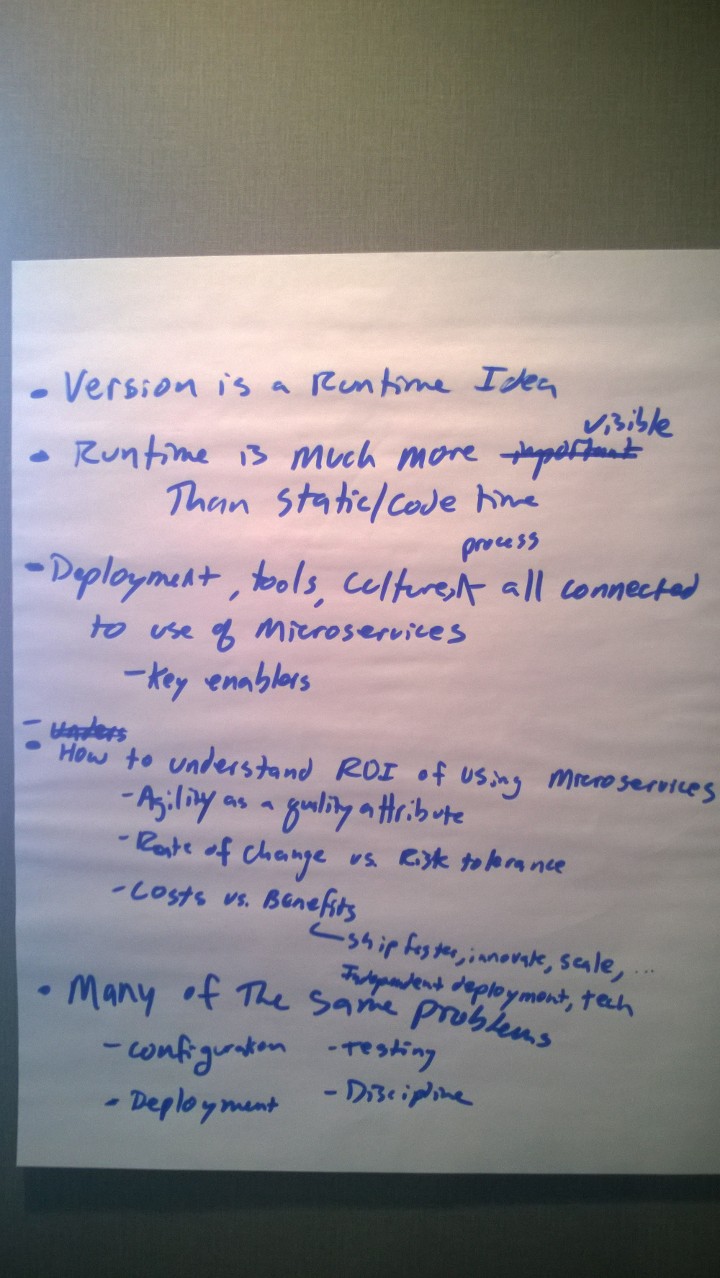 • Version is a Runtime Idea
visible
• Runtime is much more ~~important~~
Than static/code time
process
- Deployment, tools, culture, ^ all connected
to use of Microservices
- Key enablers
- ~~unders~~
• How to understand ROI of using microservices
- Agility as a quality attribute
- Rate of change vs. Risk tolerance
- Costs vs. Benefits
ship faster, innovate, scale, ...
Independent deployment, tech
• Many of The same problems
- configuration - testing
- Deployment - Discipline